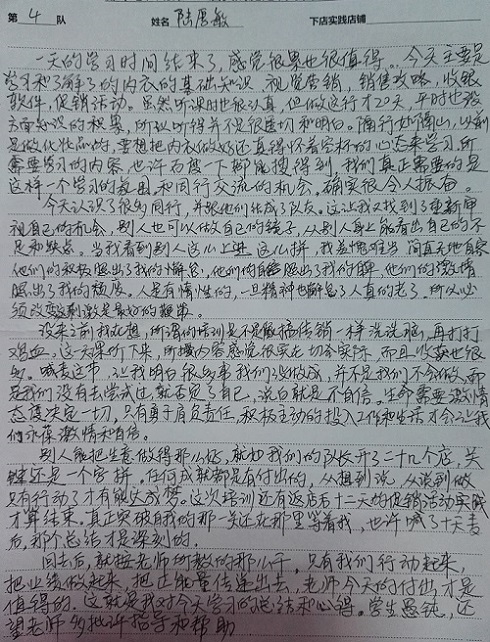 第 4 队 姓名 陆厚敏 下店实践店铺
一天的学习时间结束了,感觉很累也很值得。今天主要是
学习和了解了的内衣的基础知识,视觉营销,销售攻略,收银
软件,促销活动。虽然听课时也很认真,但做这行才20天,平时也没
方面知识的积累,所以听得并不是很透切和明白。隔行如隔山,以前
是做化妆品的,要想把内衣做好还真得怀着学徒的心态来学习,所
需要学习的内容,也许百度一下都能搜得到,我们真正需要的是
这样一个学习的氛围和同行交流的机会。确实很令人振奋。
今天认识了很多同行,并跟他们结成了队友。这让我又找到了重新审
视自己的机会,别人也可以做自己的镜子,从别人身上能看出自己的不
足和缺点。当我看到别人这么上进,这么拼,我羞愧难当,简直无地自容,
他们的积极照出了我的懈怠,他们的 照出了我的 ,他们的激情
照出了我的颓废。人是有惰性的,一旦精神也懈怠了人真的老了,所以必
须改变,刺激是最好的 。
没来之前我在想,所谓的培训是不是跟搞传销一样洗洗脑,再打打
鸡血。这一天课听下来,所授内容感觉很实在,切合实际,而且收获也很
多。喊麦这节,让我明白很多事我们没做成,并不是我们不会做,而
是我们没有去尝试过,就否定了自己,说白就是不自信。生命需要激情
态度决定一切,只有勇于肩负责任,积极主动的投入工作和生活才会让我
们永葆激情和自信。
别人能把生意做得那么好,就如我们的队长开了二十几个店,关
键还是一个字拼。任何成就都是有付出的,从想到说,从谈到做
只有行动了才有能达成梦。这次培训还有返店后十一天的促销活动实战
才算结束。真正突破自我的那一关还在那里等着我,也许喊了十天麦
后,那个总结才是深刻的。
回去后,就按老师所教的那么干。只有我们行动起来,
把业绩做起来,把正能量传递出去,老师今天的付出,才是
值得的。这就是我对今天学习的总结和心得。学生愚钝,还
望老师多批评指导和帮助